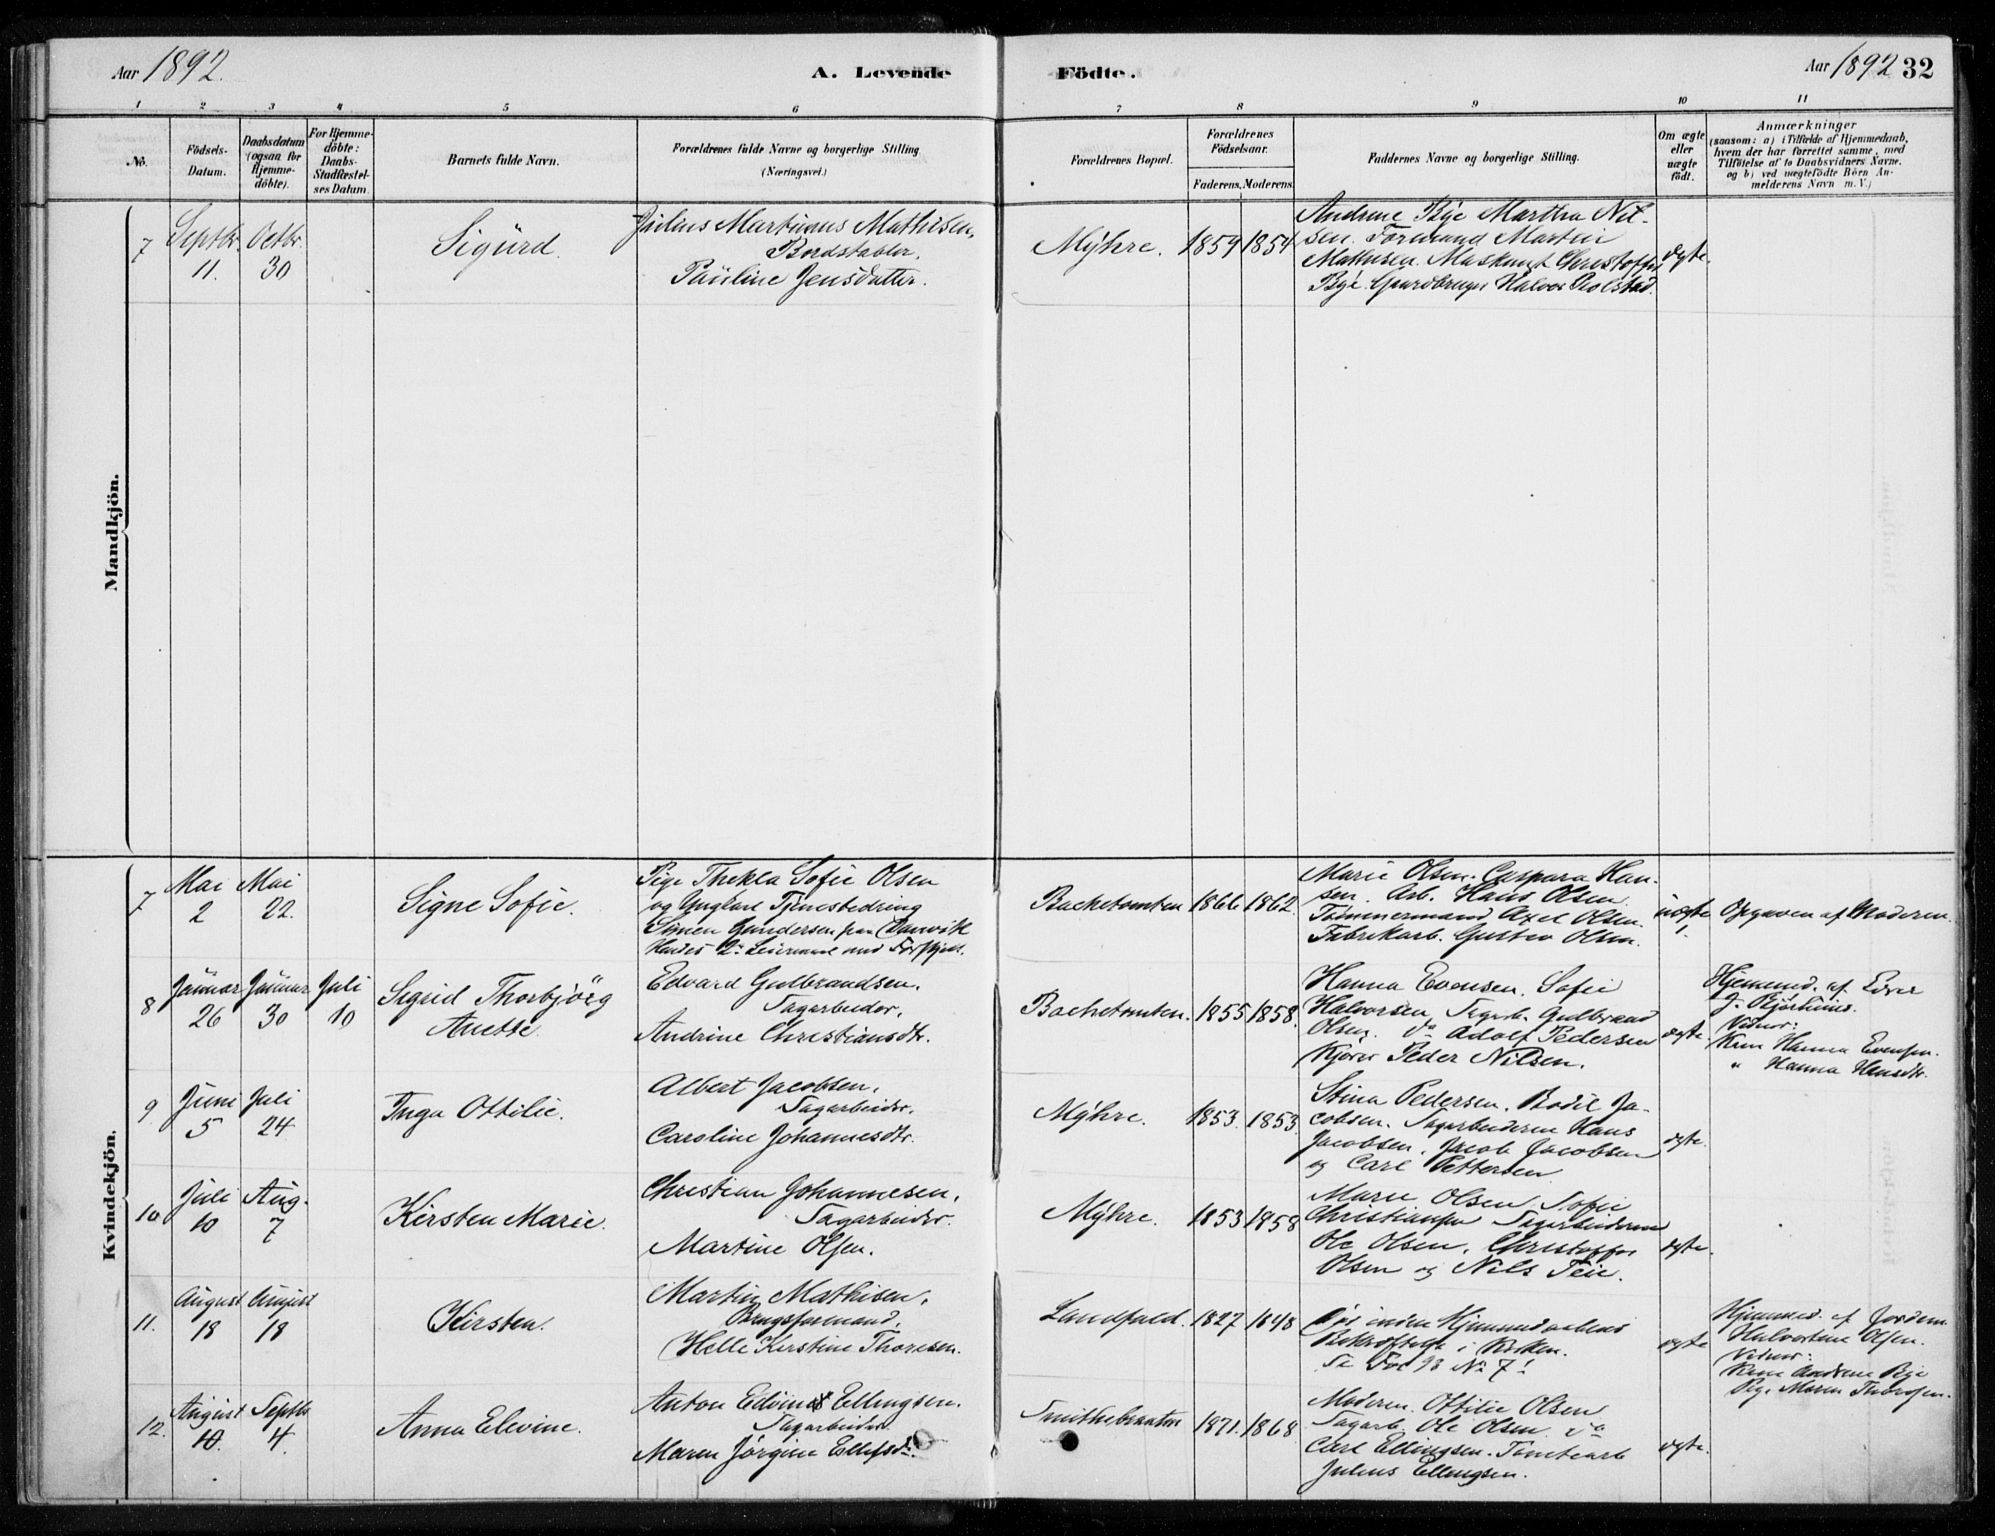 Aar 1892.
A. Levende Födte.
Aar 1892 32
1 2 3 4 5 6 7 8 9 10 11
No.
Födsels-
Datum.
Daabsdatum
(ogsaa for
Hjemme-
döbte).
For Hjemme-
döbte:
Daabs-
Stadfæstel-
ses Datum.
Barnets fulde Navn.
Forældrenes fulde Navne og borgerlige Stilling
(Næringsvei.)
Forældrenes Bopæl.
Forældrenes
Födselsaar.
Faderens. Moderens.
Faddernes Navne og borgerlige Stilling.
Om ægte
eller
uægte
födt.
Anmærkninger
(saasom: a) i Tilfælde af Hjemmedaab,
hvem der har forrettet samme, med
Tilföielse af to Daabsvidners Navne.
og b) ved uægtefödte Börn An-
melderens Navn m. V.)
Mandkjön.
7
Septbr.
11.
Octbr.
30
Sigurd.
Julius Martinius Mathisen,
Bordstabler.
Pauline Jensdatter.
Myhre.
1859 1854
Andrine Bye Martha Nil-
sen. Formand Martin
Mathisen. Maskinist Christoffer
Bye. Gaardbruger Halvor Rolstad.
ægte.
Kvindekjön.
7
Mai
2
Mai
22.
Signe Sofie.
Pige Thekla Sofie Olsen
og Ungkarl Tjenestedreng
Simen Gundersen fra Damvik
Hendes 2den Leiermaal med
Bachetomten
1866 1862.
Marie Olsen. Caspara Han-
sen. Arb. Hans Olsen
Tømmermand Axel Olsen.
Fabrikarb. Gustav Olsen.
uægte.
Opgaven af Moderen.
8
Januar
26
Januar
30
Juli
10
Sigrid Thorbjörg
Anette.
Edvard Gulbrandsen.
Sagarbeider.
Andrine Christiansdtr.
Bachetomten.
1855 1858.
Hanna Evensen. Sofie
Halvorsen, Sagarb. Gulbrand
Olsen. do Adolf Pedersen
Kjører Peder Nilsen.
ægte.
Hjemmed. af Lærer
J. Bjørhuus.
Vidner:
Kone Hanna Evensen.
" Hanna Hansdtr.
9
Juni
5
Juli
24
Inga Ottilie.
Albert Jacobsen.
Sagarbeider.
Caroline Johannesdtr.
Myhre.
1853. 1853.
Stina Pedersen. Bodil Ja-
cobsen. Sagarbeiderne Hans
Jacobsen, Jacob Jacobsen
og Carl Pettersen
ægte.
10
Juli
10
Aug.
7
Kirsten Marie.
Christian Johannesen.
Sagarbeider.
Martine Olsen.
Myhre.
1853 1858
Marie Olsen, Sofie
Christiansen Sagarbeiderne
Ole Olsen, Christoffer
Olsen og Nils Teie.
ægte.
11.
August
18
August
18
Kirsten.
Martin Mathisen,
Brugsformand,
Helle Kirstine Thoresen.
Landfald.
1827 1848
Død inden Hjemmedaabens
Bekræftelse i Kirken.
Se Døde 93 No 7!
ægte
Hjemmed. af Jordem.
Halvordine Olsen.
Vidner:
Kone Andrine Bye
Pige Maren Thoresen.
12.
August
10.
Septbr
4.
Anna Elvine.
Anton Edvin Ellingsen.
Sagarbeider
Maren Jørgine Ellefsdr.
Smithebraaten
1871. 1868
Moderen. Ottilie Olsen
Sagarb. Ole Olsen. do
Carl Ellingsen. Tomtearb
Julius Ellingsen.
ægte.